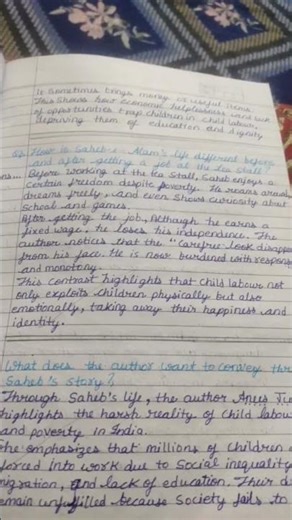 It sometimes brings money or useful items.
This shows how economic helplessness and lack
of opportunities trap children in child labour,
depriving them of education and dignity
How is Saheb-e-Alam's life different before
and after getting a job at the tea stall?
Ans... Before working at the tea stall, Saheb enjoys a
certain freedom despite poverty. He roams around
dreams freely, and even shows curiosity about
school and games.
After getting the job, Although he earns a
fixed wage, he loses his independence. The
author notices that the "carefree look disappear
from his face. He is now burdened with respons
and monotony.
This contrast highlights that child labour not
only exploits children physically but also
emotionally, taking away their happiness and
identity.
What does the author want to convey thr
Saheb's story?
Through Saheb's life, the author Anees Ju
highlights the harsh reality of child labou
and poverty in India.
She emphasizes that millions of children a
forced into work due to social inequality
migration, and lack of education. Their d
emain unfulfilled because society fails to